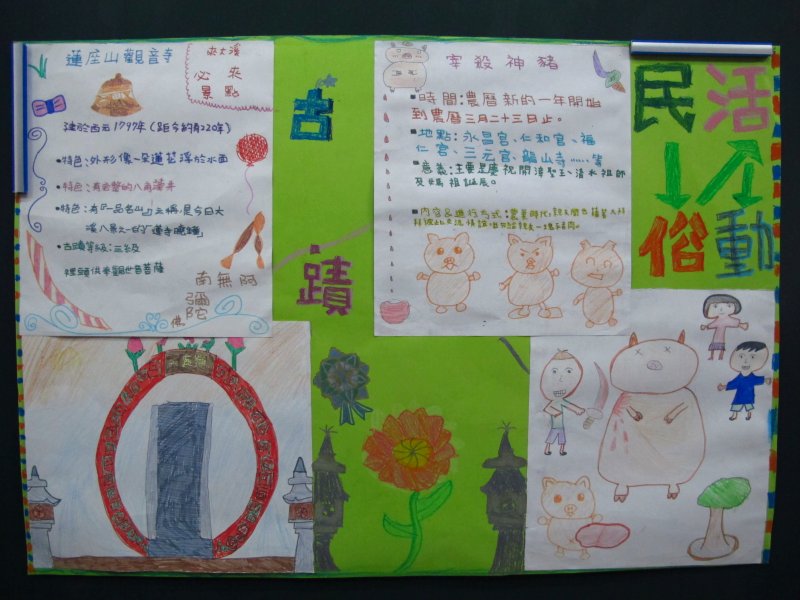 蓮座山觀音寺
來大溪
必來
景點
建於西元1797年(距今約有220年)
•特色:外形像一朵蓮花浮於水面
•特色:有完整的八角藻井
•特色:有『一品名山』之稱,是今日大
溪八景之一的「蓮寺曉鐘」
•古蹟等級:三級
裡頭供奉觀世音菩薩
南無阿
彌陀
佛
古
蹟
宰殺神豬
時間:農曆新的一年開始
到農曆三月二十三日止。
地點:永昌宮、仁和宮、福
仁宮、三元宮、龍山寺……等
意義:主要是慶祝開漳聖王、清水祖師
及媽祖誕辰。
內容&進行方式:農業時代
活動
民俗